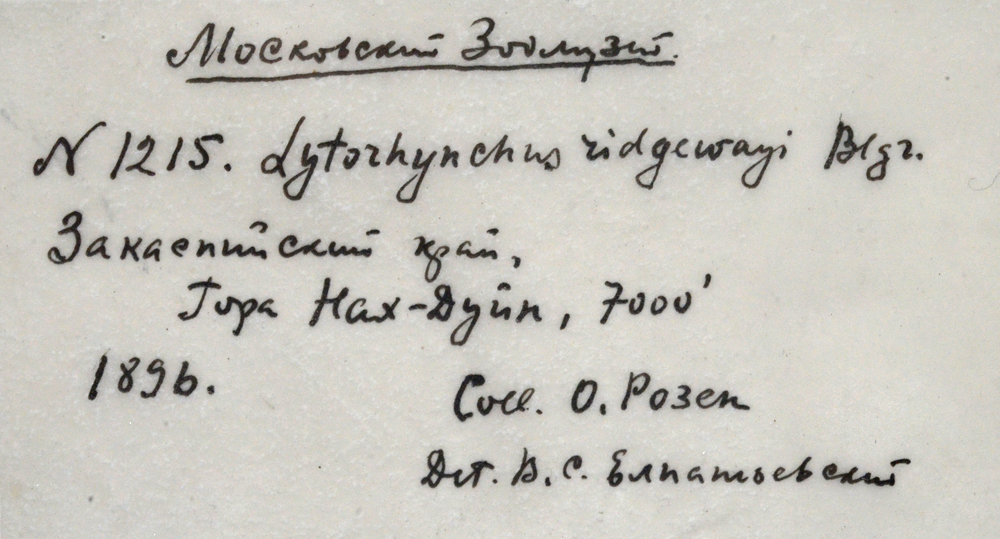 Московский Зоомузей.
N 1215. Lytorhynchus ridgewayi Blgr.
Закаспийский край,
Гора Нах-Дуйн, 7000'
1896.
Coll. О. Розен
Det. В. С. Елпатьевский